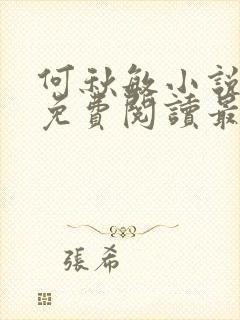 何秋敏小說
免費閱讀最
張希